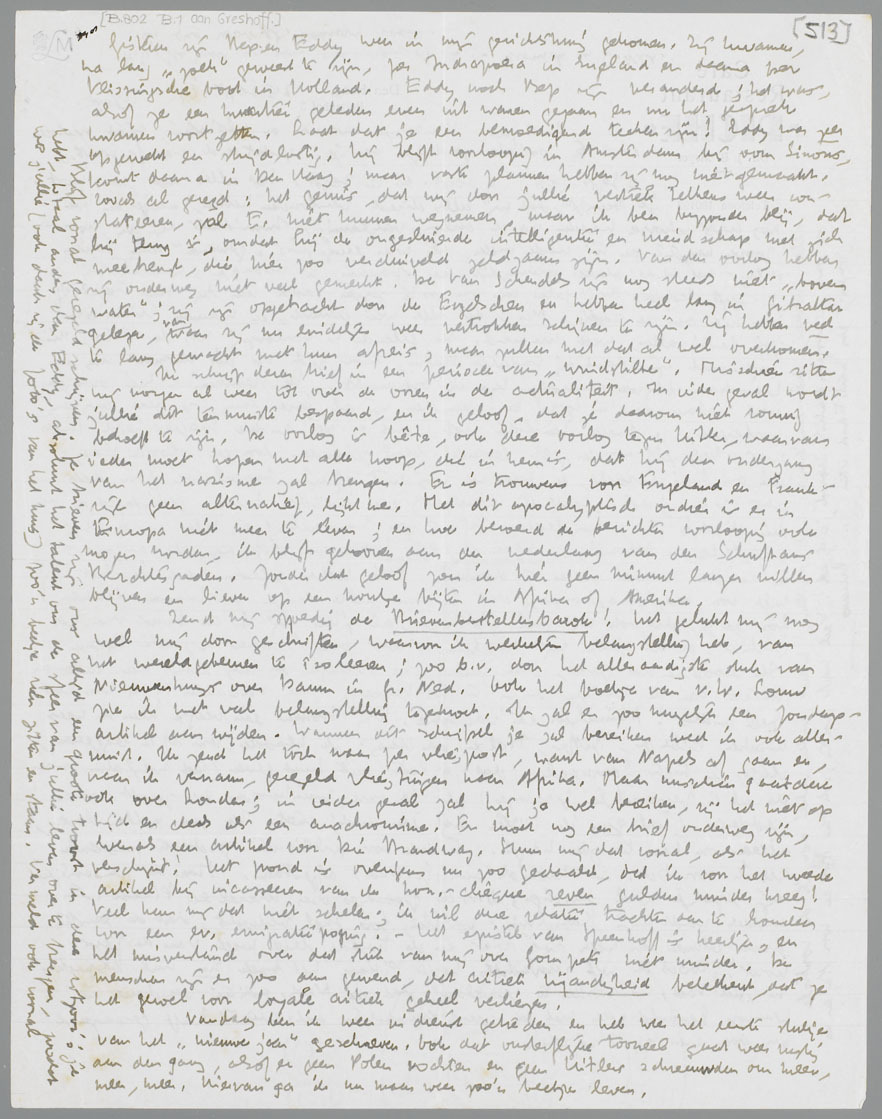 [B.802 B.1 aan Greshoff.]
[513]
LM
Gisteren zijn Bep en Eddy weer in mijn gezichtskring gekomen. Zij kwamen,
na lang „zoek" geweest te zijn, per Indrapoera in Engeland en daarna per
Vlissingsche boot in Holland. Eddy noch Bep zijn veranderd; het was,
alsof ze een kwartier geleden even uit waren gegaan en nu het gesprek
kwamen voortzetten. Laat dat je een bemoedigend teeken zijn! Eddy was zeer
opgewekt en strijdlustig. Hij blijft voorloopig in Amsterdam bij oom Simons,
komt daarna in Den Haag; maar vaste plannen hebben zij nog niet gemaakt.
Zooals al gezegd: het gemis, dat wij door jullie vertrek telkens weer con-
stateeren, zal E. niet kunnen wegnemen, maar ik ben bijzonder blij, dat
hij terug is, omdat hij de ongesluierde intelligentie en vriendschap met zich
meebrengt, die hier zoo verduiveld zeldzaam zijn. Van den oorlog hebben
zij onderweg niet veel gemerkt. De van Schendels zijn nog steeds niet „boven
water"; zij zijn opgebracht door de Engelschen en hebben heel lang in Gibraltar
gelegen, van waar zij nu eindelijk weer vertrokken schijnen te zijn. Zij hebben veel
te lang gewacht met hun afreis, maar zullen met dat al wel overkomen.
Ik schrijf dezen brief in een periode van „windstilte". Misschien zitten
wij morgen al weer tot over de ooren in de actualiteit. In ieder geval wordt
jullie dit tenminste bespaard, en ik geloof, dat je daarom niet rouwig
behoeft te zijn. De oorlog is bête, ook deze oorlog tegen Hitler, waarvan
ieder moet hopen met alle hoop, die in hem is, dat hij den ondergang
van het nazisme zal brengen. Er is trouwens voor Engeland en Frank-
rijk geen alternatief, lijkt me. Met dit apocalyptische ondier is er in
Europa niet meer te leven; en hoe beroerd de berichten voorloopig ook
mogen worden, ik blijf gelooven aan de nederlaag van den Schurk van
Berchtesgaden. Zonder dat geloof zou ik hier geen minuut langer willen
blijven en liever op een houtje bijten in Afrika of Amerika.
Zend mij spoedig de Brievenbestellersbarok! Het gelukt mij nog
wel mij door geschriften, waarvoor ik werkelijk belangstelling heb, van
het wereldgebeuren te isoleeren; zoo b.v. door het alleraardigste stuk van
Nieuwenhuys over Daum in Gr. Ned. Ook het boekje van v. W. Louw
zie ik met veel belangstelling tegemoet. Ik zal er zoo mogelijk een Zondags-
artikel aan wijden. Wanneer dit schrijfsel je zal bereiken weet ik ook aller-
minst. Ik zend het toch maar per vliegpost, want van Napels af gaan er,
naar ik vernam, geregeld vliegtuigen naar Afrika. Maar misschien gaat deze
ook over Londen; in ieder geval zal hij je wel bereiken, zij het niet op
tijd en deels als een anachronisme. Er moet nog een brief onderweg zijn,
evenals een artikel voor Die Brandwag. Meld mij dat vooral, als het
verschijnt! Het pond is overigens nu zoo gedaald, dat ik voor het tweede
artikel bij incasseeren van de hon.-chèque zeven gulden minder kreeg!
Veel kan mij dat niet schelen; ik wil deze relatie trachten aan te houden
voor een ev. emigratiepoging. – Het epistel van Speenhoff is heerlijk, en
het misverstand over dat stuk van mij over Gomperts niet minder. De
menschen zijn er zoo aan gewend, dat critiek vijandigheid beteekent, dat ze
het gevoel voor loyale critiek geheel verliezen.
Vandaag ben ik weer in dienst getreden en heb weer het eerste stukje
van het „nieuwe jaar" geschreven. Ook dat onsterfelijke tooneel gaat weer rustig
aan den gang, alsof er geen Polen vochten en geen Hitler schreeuwde om meer,
meer, meer. Hiervan ga ik nu maar weer zoo'n beetje leven.
Blijf vooral geregeld schrijven. Je brieven zijn ons altijd een groote troost in deze
hebt, totaal anders dan Eddy, absoluut het talent om de sfeer van jullie leven over te brengen, zoodat
we jullie (ook dank zij de foto's van het huis) zoo'n beetje zien zitten en staan. Vermeld ook vooral